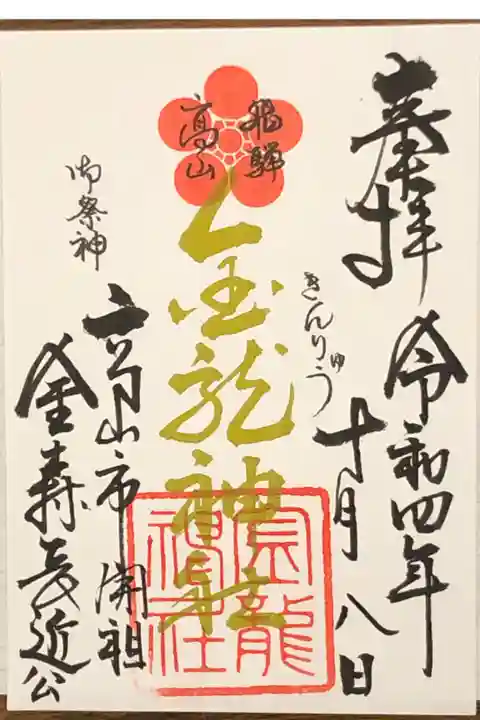 奉拝
令和四年
十月八日
飛騨
高山
金龍神社
きんりゅう
金龍
神社
御祭神
高山市 開祖
金森長近公